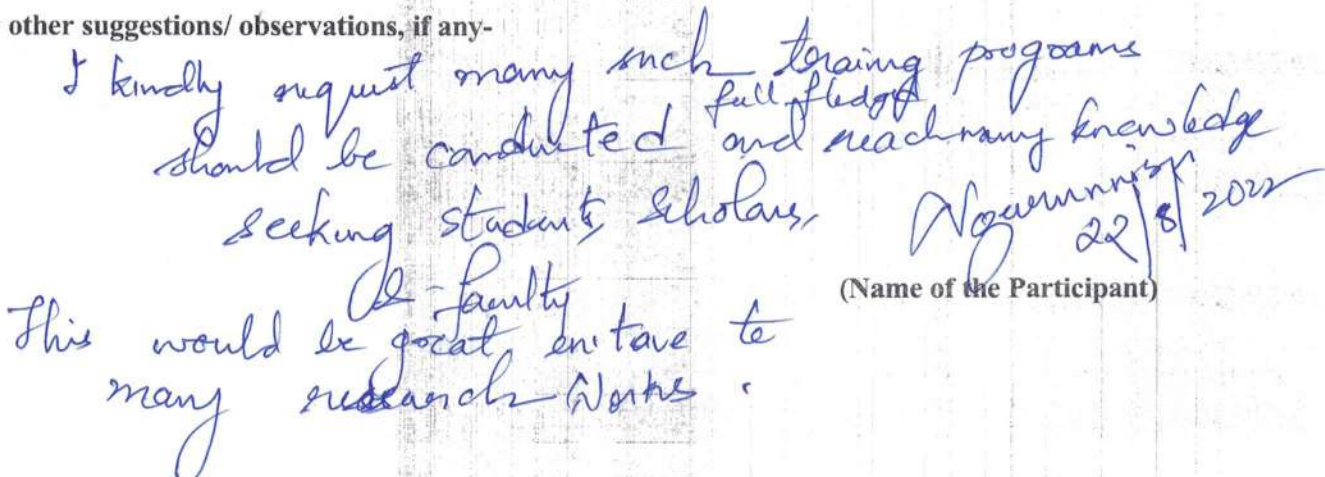 other suggestions/ observations, if any-
I kindly request many such traing programs
full fledged
should be conducted and reach many knowledge
seeking students, scholars,
& faculty
22/8/2022
(Name of the Participant)
This would be great to
many research works.